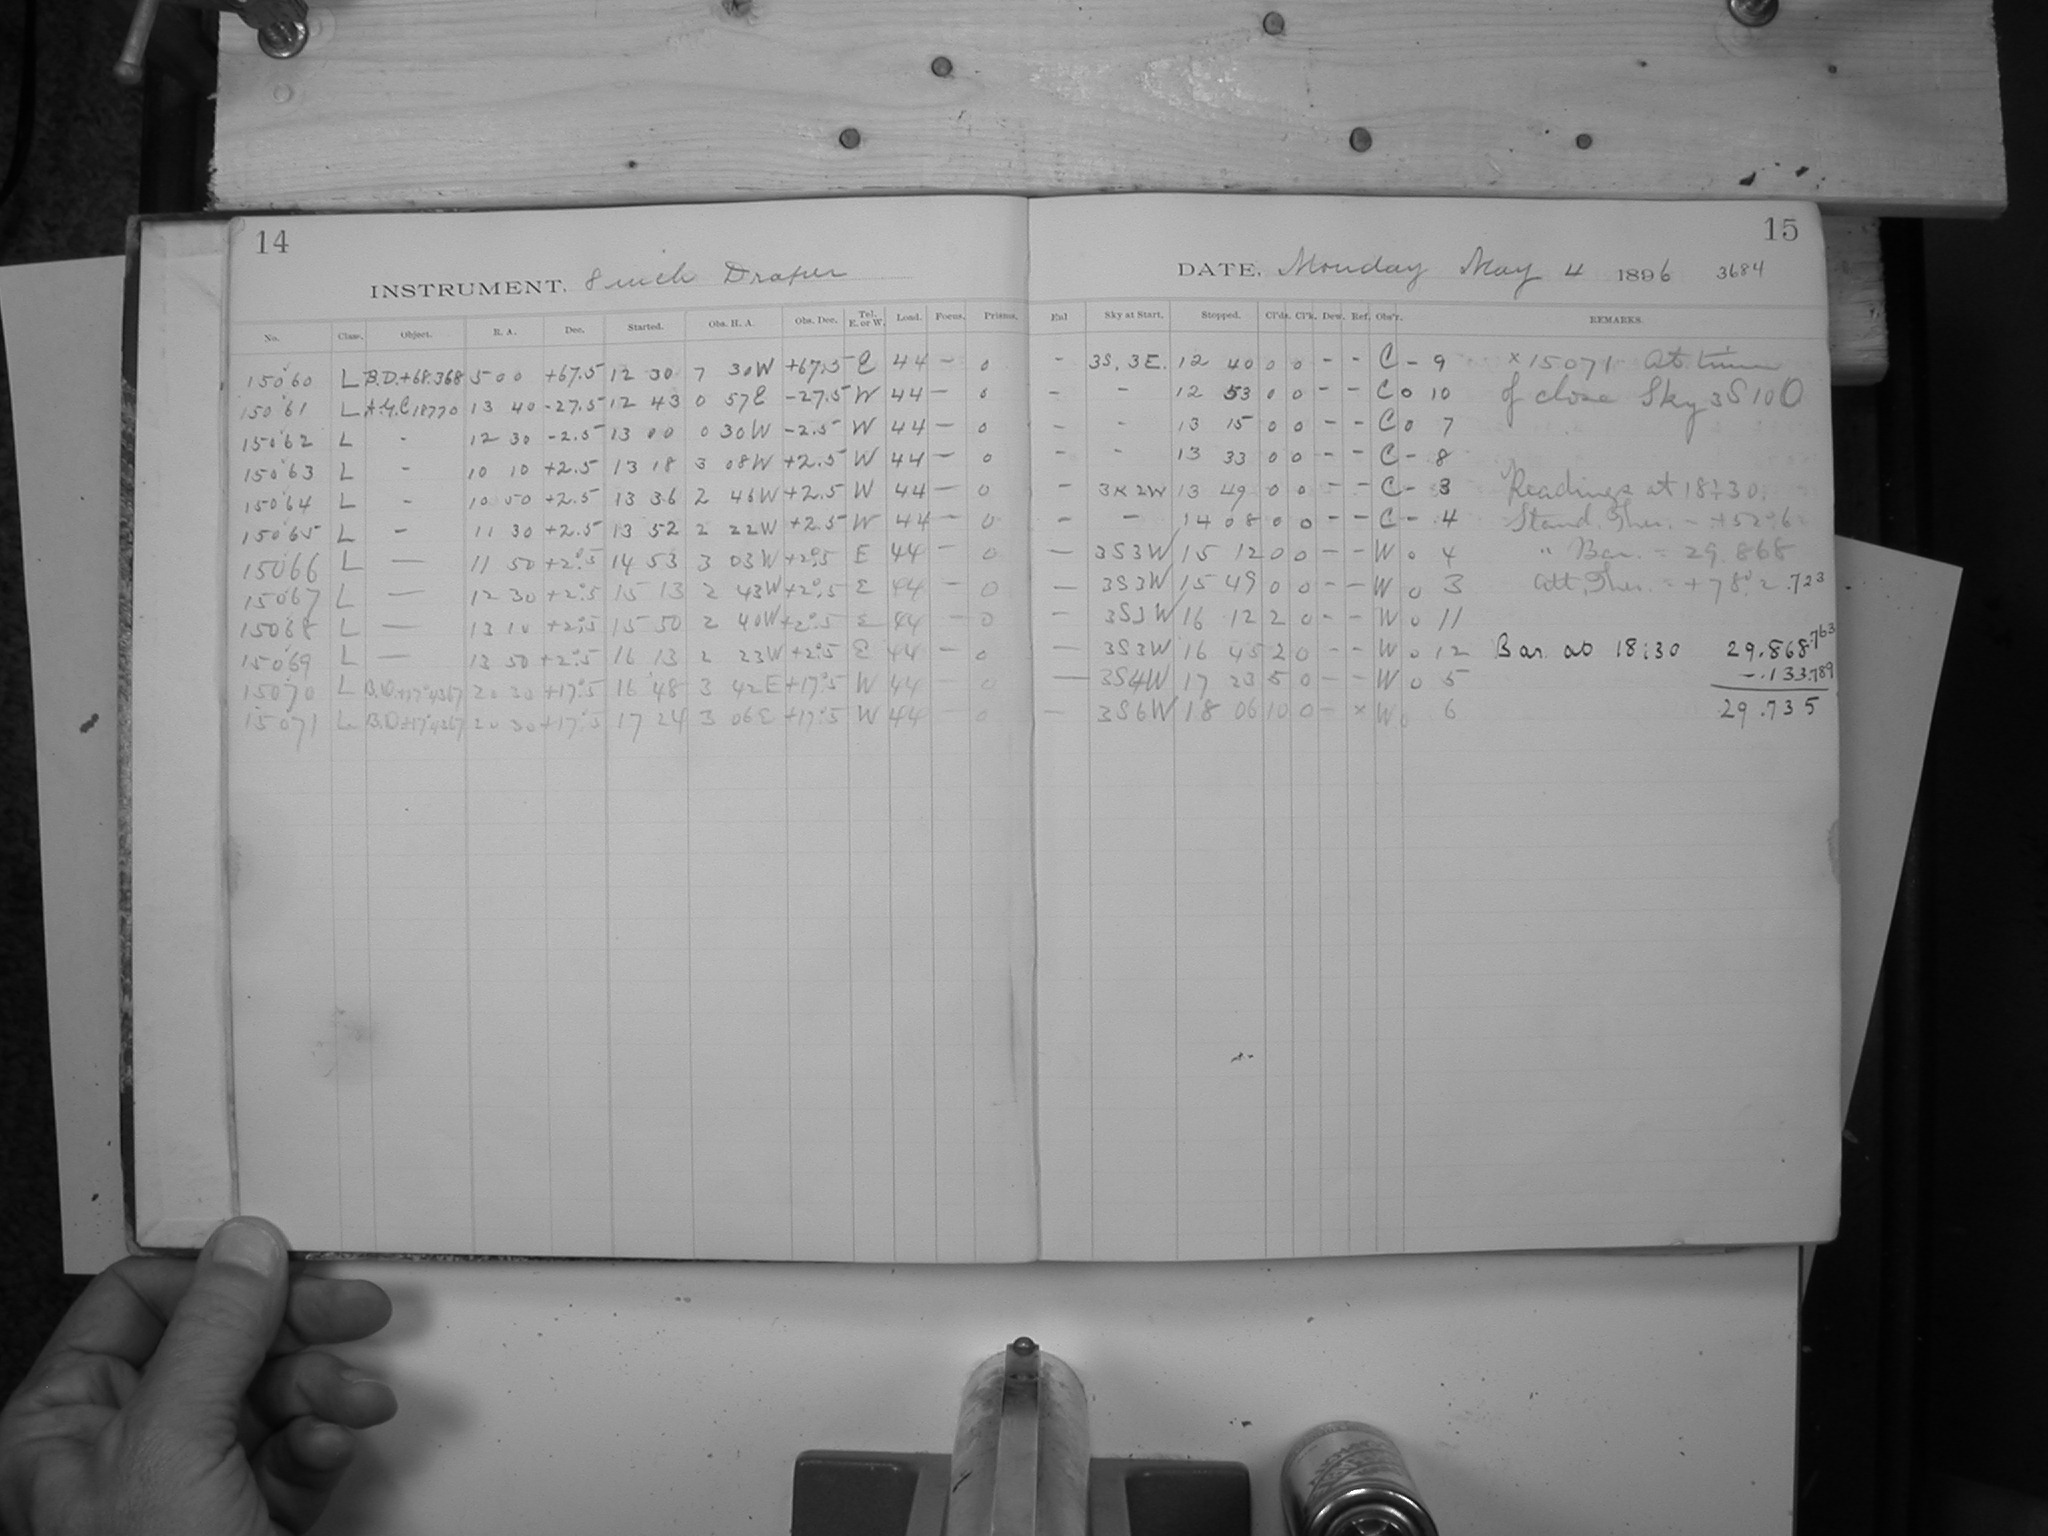 14
INSTRUMENT. 8 inch Draper
No. Class. Object. R. A. Dec. Started. Obs. H. A. Obs. Dec. Tel. E. or W. Load. Focus. Prisms.
15060 L B.D.+68.368 5 00 +67.5 12 30 7 30W +67.5 E 44 - 0
15061 L A.G.C.18770 13 40 -27.5 12 43 0 57E -27.5 W 44 - 0
15062 L - 12 30 -2.5 13 00 0 30W -2.5 W 44 - 0
15063 L - 10 10 +2.5 13 18 3 08W +2.5 W 44 - 0
15064 L - 10 50 +2.5 13 36 2 46W +2.5 W 44 - 0
15065 L - 11 30 +2.5 13 52 2 22W +2.5 W 44 - 0
15066 L — 11 50 +2°.5 14 53 3 03W +2°.5 E 44 - 0
15067 L — 12 30 +2°.5 15 13 2 43W +2°.5 E 44 - 0
15068 L — 13 10 +2°.5 15 50 2 40W +2°.5 E 44 - 0
15069 L — 13 50 +2°.5 16 13 2 23W +2°.5 E 44 - 0
15070 L B.D.+17°4367 20 30 +17°.5 16 48 3 42E +17°.5 W 44 - 0
15071 L B.D.+17°4367 20 30 +17°.5 17 24 3 06E +17°.5 W 44 - 0
15
DATE. Monday May 4 1896 3684
Enl Sky at Start. Stopped. Cl'ds. Cl'k. Dew. Ref. Obs'r. REMARKS.
- 3S, 3E. 12 40 0 0 - - C - 9 x 15071 At time
- - 12 53 0 0 - - C 0 10 of close Sky 3S10O
- - 13 15 0 0 - - C 0 7
- - 13 33 0 0 - - C - 8
- 3S 2W 13 49 0 0 - - C - 3 Readings at 18:30.
- - 14 08 0 0 - - C - 4 Stand. Ther. = +52°.6
— 3S3W 15 12 0 0 - - W 0 4 " Bar. = 29.868
— 3S3W 15 49 0 0 - - W 0 3 Att. Ther. = +78°.2 .723
- 3S3W 16 12 2 0 - - W 0 11
— 3S3W 16 45 2 0 - - W 0 12 Bar. at 18:30 29.868 .763
— 3S4W 17 23 5 0 - - W 0 5 -.133 .789
— 3S6W 18 06 10 0 - x W 0 6 29.735